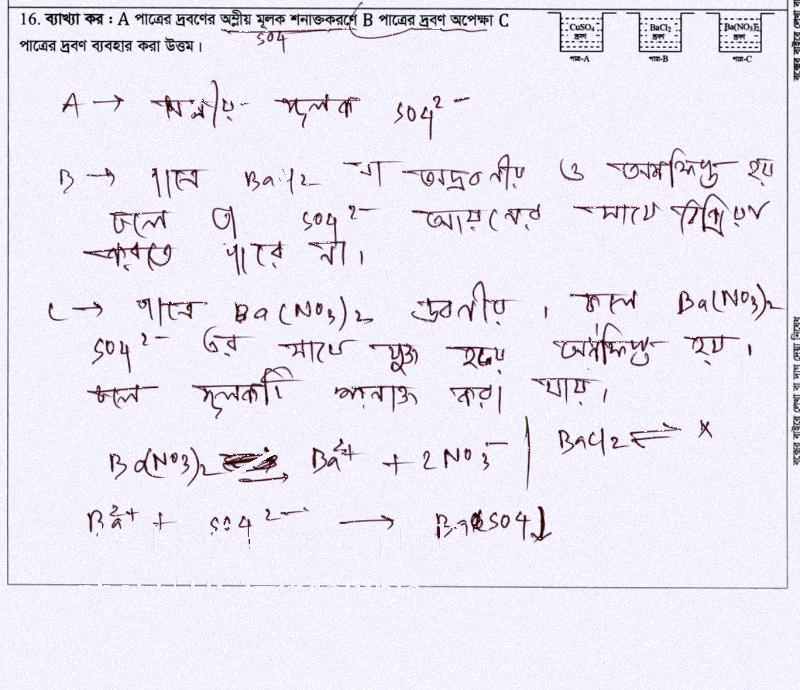 16. ব্যাখ্যা কর : A পাত্রের দ্রবণের অম্লীয় মূলক শনাক্তকরণে B পাত্রের দ্রবণ অপেক্ষা C
পাত্রের দ্রবণ ব্যবহার করা উত্তম।
SO4
CuSO₄ দ্রবণ
BaCl₂ দ্রবণ
Ba(NO₃)₂ দ্রবণ
পাত্র-A
পাত্র-B
পাত্র-C
A → অম্লীয় মূলক SO4²⁻
B → পাত্রে BaCl2 যা অদ্রবনীয় ও অধঃক্ষিপ্ত হয়
ফলে তা SO4²⁻ আয়নের সাথে বিক্রিয়া
করতে পারে না।
C → পাত্রে Ba(NO3)2 দ্রবনীয়, ফলে Ba(NO3)2
SO4²⁻ এর সাথে যুক্ত হয়ে অধঃক্ষিপ্ত হয়।
ফলে মূলকটি শনাক্ত করা যায়।
Ba(NO3)2 → Ba²⁺ + 2NO3⁻ | BaCl2 ⇌ ×
Ba²⁺ + SO4²⁻ → BaSO4↓
বক্সের বাইরে লেখা বা দাগ দেয়া নিষেধ